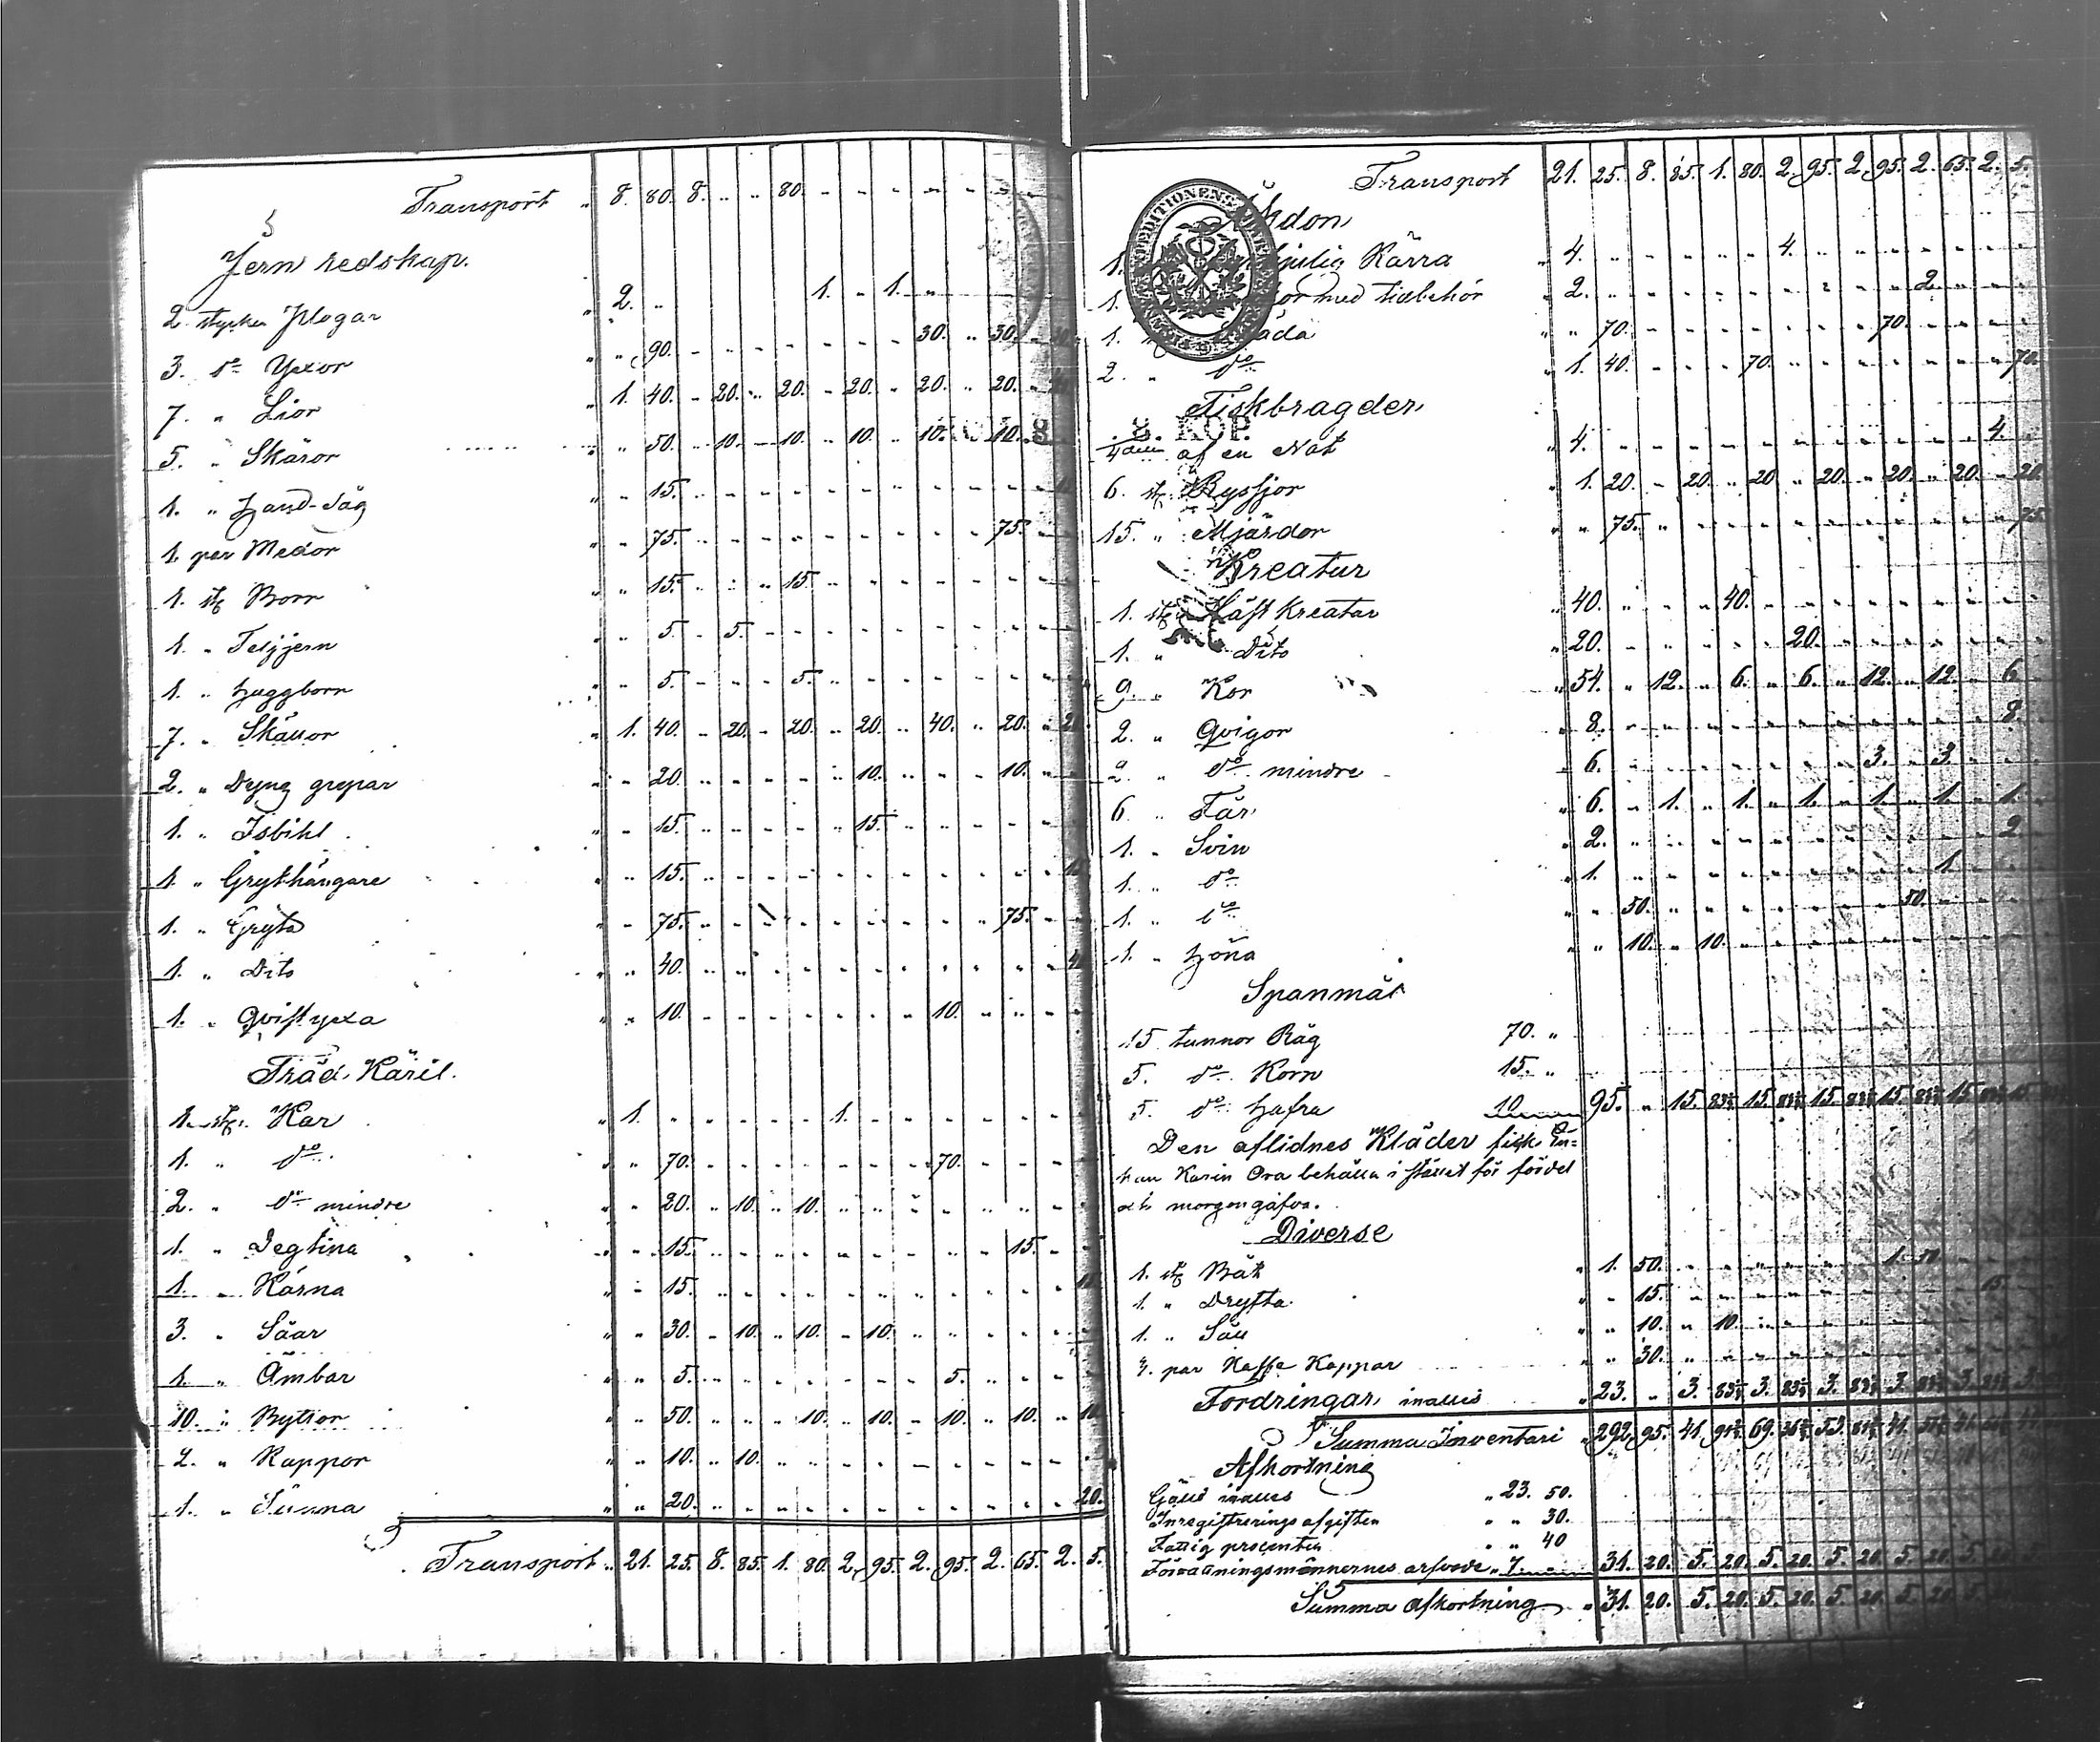 Transport " 8. 80. 8. " " 80. " " " " " " "
Jern redskap.
2 stycken Plogar " 2. " 1. " 1. "
3. do Yxor " " 90. 30. " 30. "
7. " Lior " 1. 40. " 20. " 20. " 20. " 20. " 20. "
5. " Skäror " " 50. " 10. " 10. " 10. " 10. " 10. "
1. " Hand-Såg " " 15.
1. par Medor " " 75. 75.
1. st. Borr " " 15. 15.
1. " Teljjern " " 5. " 5.
1. " Huggborr " " 5. 5.
7. " Skällor " 1. 40. " 20. " 20. " 20. " 40. " 20. "
2. " Dyng grepar " " 20. 10. 10.
1. " Isbihl " " 15. 15.
1. " Grythängare " " 15.
1. " Gryta " " 75. 75.
1. " Dito " " 40.
1. " Qvistyxa " " 10. 10.
Träd Käril.
1. st. Kar " 1. 1.
1. " do " " 70. 70.
2. " do mindre " " 20. " 10. " 10.
1. " Degtina " " 15. 15.
1. " Kärna " " 15.
3. " Såar " " 30. " 10. " 10. " 10.
1. " Ämbar " " 5. 5.
10. " Byttor " " 50. 10. " 10. " 10. " 10. " 10
2. " Kappor " " 10. " 10.
1. " " " 20. 20.
Transport " 21. 25. 8. 85. 1. 80. 2. 95. 2. 95. 2. 65. 2. 5.
Transport 21. 25. 8. 85. 1. 80. 2. 95. 2. 95. 2. 65. 2. 5.
Åkdon
1. Kärra " 4. 4.
1. med tillbehör " 2. 2.
1. " " 70. 70.
2. " do " 1. 40. 70. 70.
Fiskbragder
8. KOP.
4 delen af en Not " 4. 4.
6. st. Ryssjor " 1. 20. " 20. " 20 " 20. " 20. " 20. " 20
15. " Mjärdor " " 75. 75
Kreatur
1. st. Häst Kreatur " 40. 40.
1. " Dito " 20. 20.
9. " Kor " 54. " 12. " 6. " 6. " 12. " 12. " 6
2. " Qvigor " 8. 8.
2. " do mindre " 6. 3. 3.
6 " Får " 6. " 1. " 1. " 1. " 1. " 1. " 1.
1. " Svin " 2. 2
1. " do " 1. 1.
1. " do " " 50. 50.
1. " Höna " " 10. " 10.
Spanmål
15 tunnor Råg 70. "
5. do Korn 15. "
5. do Hafra 10 95. " 15. 83 15. 15. 15. 15 15
Den aflidnes Kläder fick En-
kan Karin Ora behålla i stället för fördel
och morgongåfva.
Diverse
1. st. Båt " 1. 50. 1. 50
1. " Dryfta " " 15. 15.
1. " Såll " " 10. " 10.
3. par Kaffe Koppar " " 30.
Fordringar inalles " 23. " 3. 3. 3. 3. 3 3
Summa Inventari " 292. 95. 41. 69. 53. 41.
Afkortning
Gäld inalles " 23. 50.
Inregistrerings afgiften " " 30.
Fattig procenten " " 40
Förvaltningsmännernes arfvode " 7 31. 20. 5. 20. 5. 20. 5 20. 5. 20 5
Summa afkortning " 31. 20. 5. 20. 5. 20. 5. 20. 5. 20 5